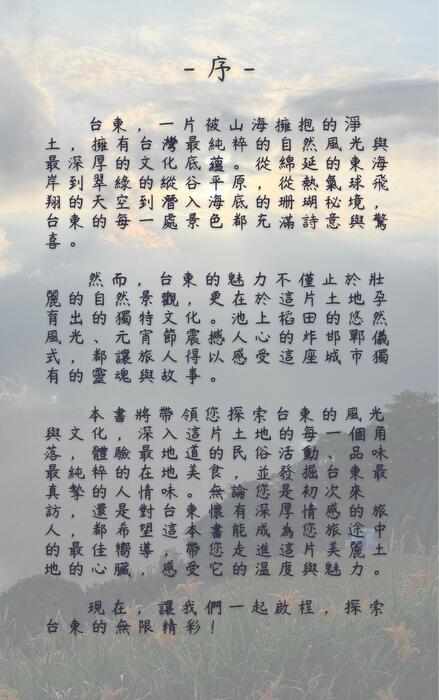 -序-
台東，一片被山海擁抱的淨
土，擁有台灣最純粹的自然風光與
最深厚的文化底蘊。從綿延的東海
岸到翠綠的縱谷平原，從熱氣球飛
翔的天空到潛入海底的珊瑚秘境，
台東的每一處景色都充滿詩意與驚
喜。
然而，台東的魅力不僅止於壯
麗的自然景觀，更在於這片土地孕
育出的獨特文化。池上稻田的悠然
風光、元宵節震撼人心的炸邯鄲儀
式，都讓旅人得以感受這座城市獨
有的靈魂與故事。
本書將帶領您探索台東的風光
與文化，深入這片土地的每一個角
落，體驗最地道的民俗活動，品味
最純粹的在地美食，並發掘台東最
真摯的人情味。無論您是初次來
訪，還是對台東懷有深厚情感的旅
人，都希望這本書能成為您旅途中
的最佳嚮導，帶您走進這片美麗土
地的心臟，感受它的溫度與魅力。
現在，讓我們一起啟程，探索
台東的無限精彩！